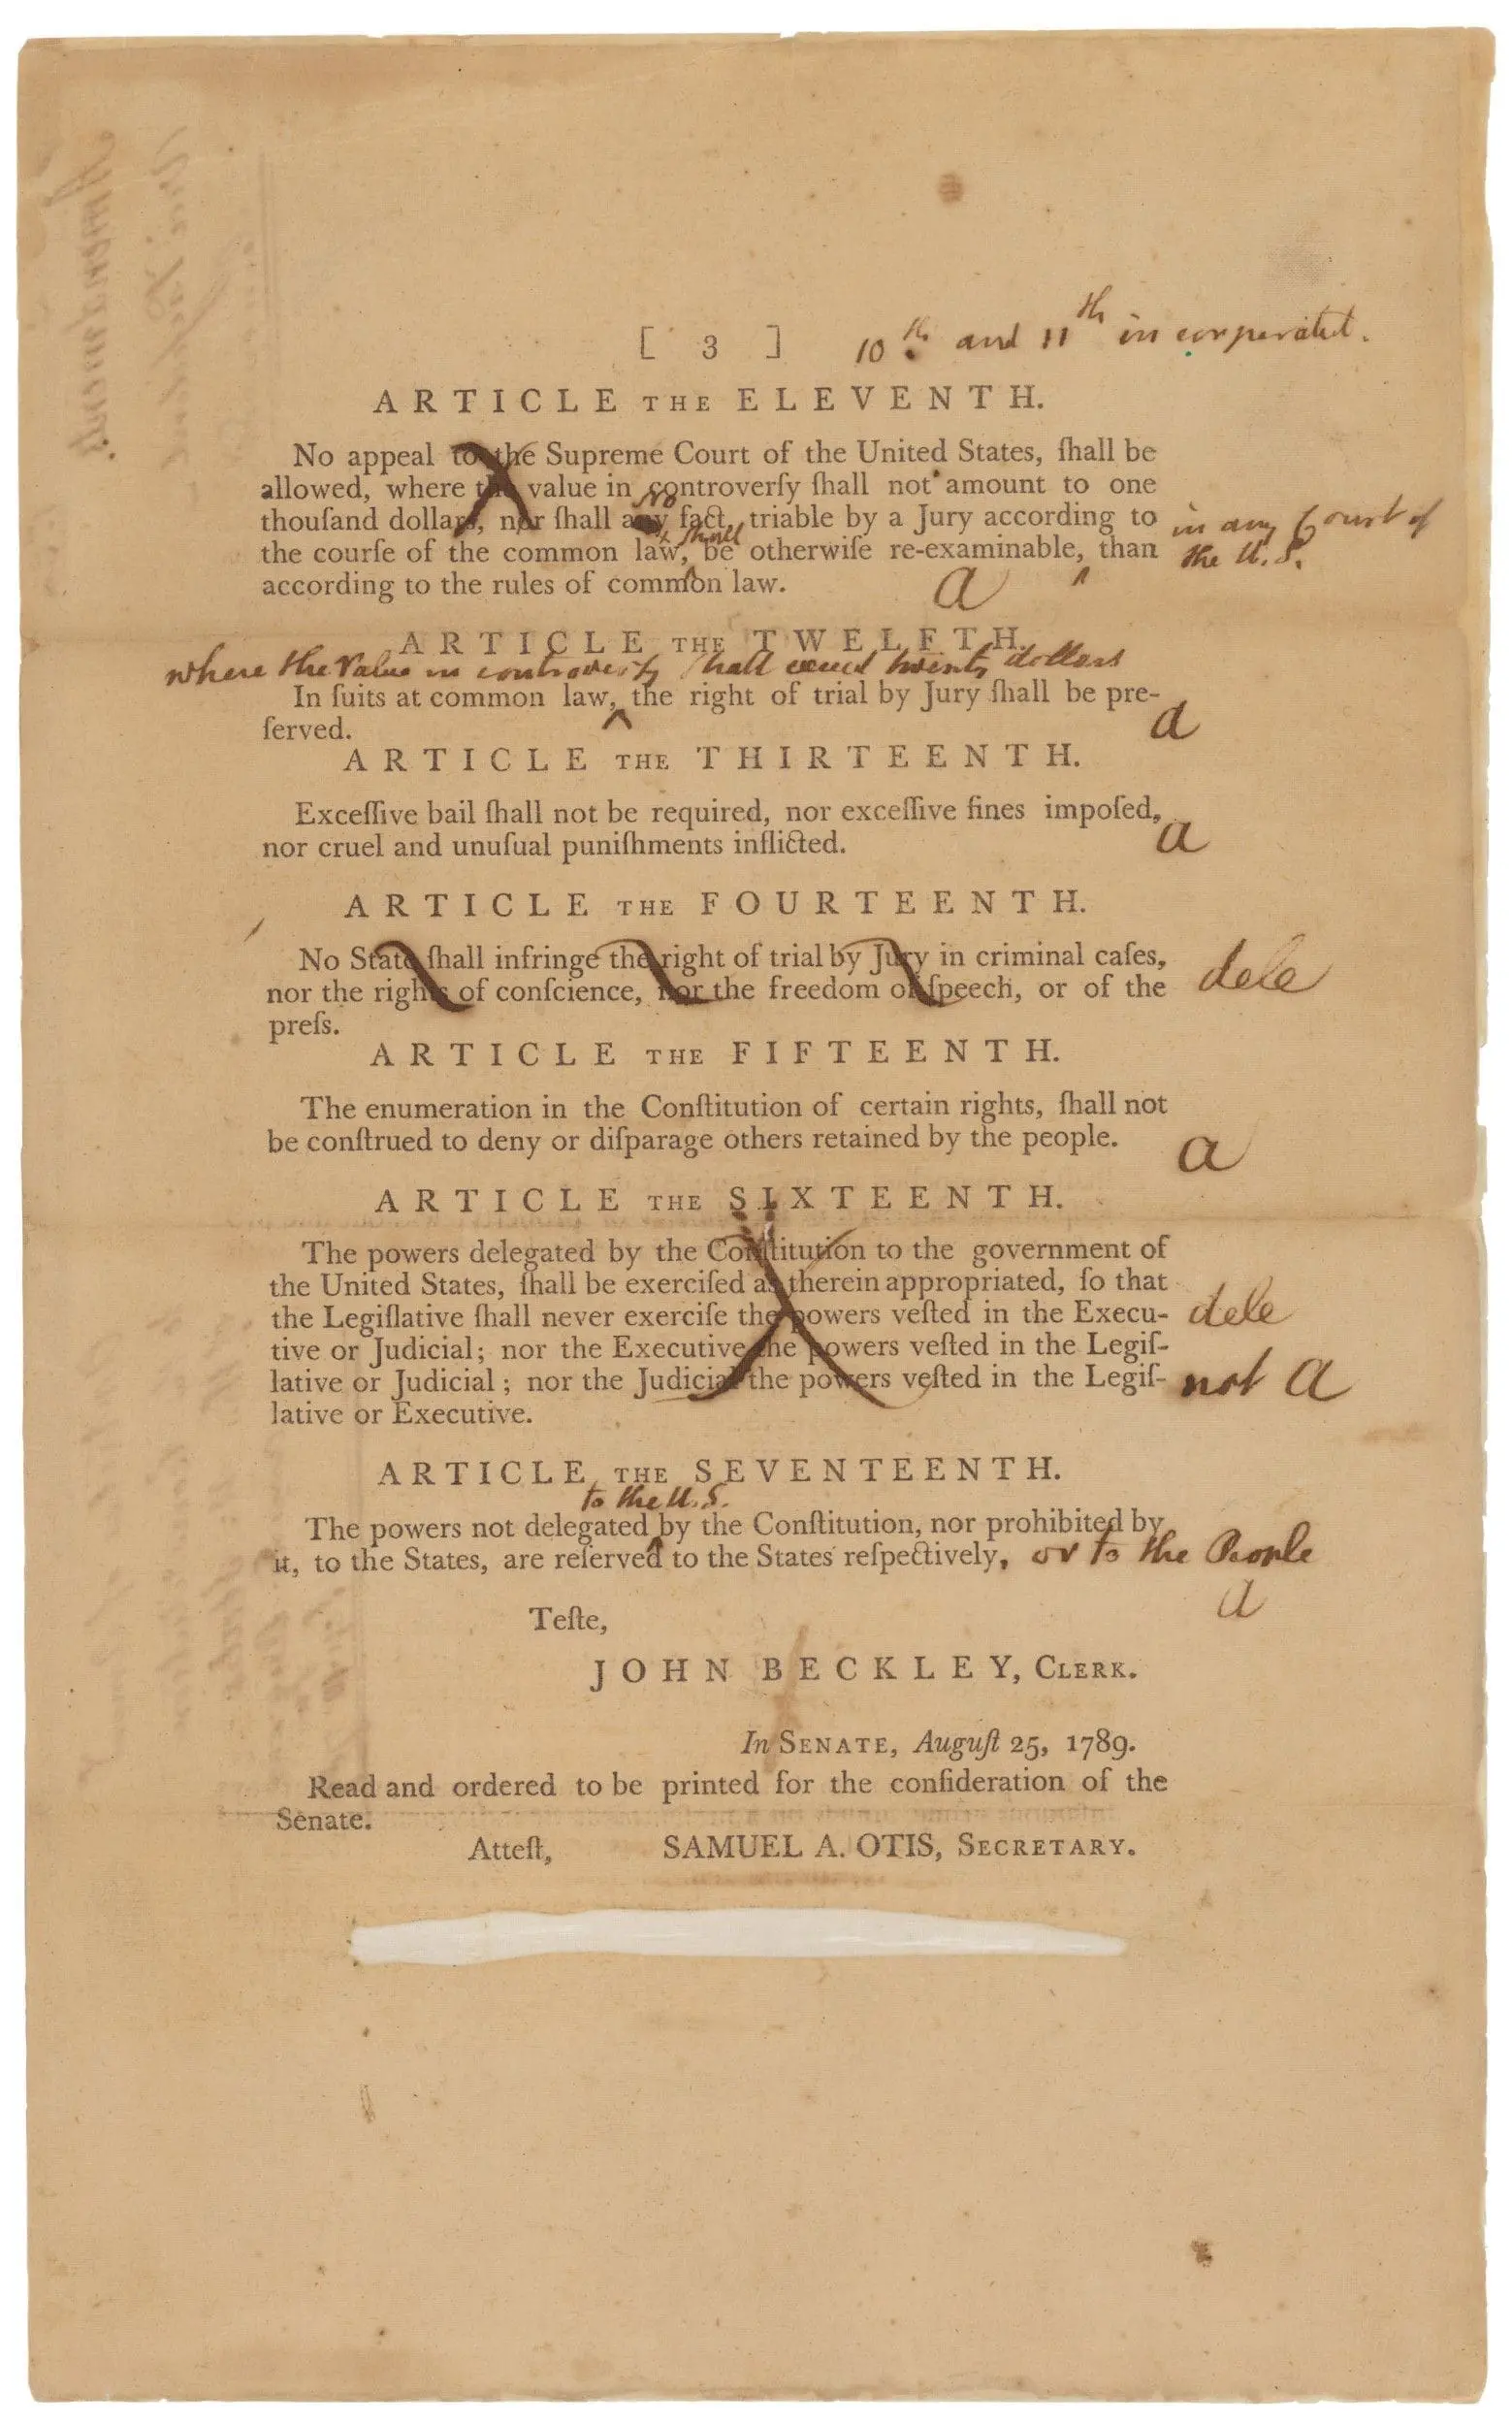 [ 3 ] 10th and 11th incorporated.
ARTICLE THE ELEVENTH.
No appeal to the Supreme Court of the United States, ſhall be
allowed, where the value in controverſy ſhall not amount to one
no
thouſand dollars, nor ſhall any fact, triable by a Jury according to in any Court of
shall
the courſe of the common law, be otherwiſe re-examinable, ^ than the U.S.
according to the rules of common law. a
ARTICLE THE TWELFTH.
where the Value in controversy shall exceed twenty dollars
In ſuits at common law, ^ the right of trial by Jury ſhall be pre-
ſerved. a
ARTICLE THE THIRTEENTH.
Exceſſive bail ſhall not be required, nor exceſſive fines impoſed,
nor cruel and unuſual puniſhments inflicted. a
ARTICLE THE FOURTEENTH.
No State ſhall infringe the right of trial by Jury in criminal caſes,
nor the rights of conſcience, nor the freedom of ſpeech, or of the dele
preſs.
ARTICLE THE FIFTEENTH.
The enumeration in the Conſtitution of certain rights, ſhall not
be conſtrued to deny or diſparage others retained by the people. a
ARTICLE THE SIXTEENTH.
The powers delegated by the Conſtitution to the government of
the United States, ſhall be exerciſed as therein appropriated, ſo that
the Legiſlative ſhall never exerciſe the powers veſted in the Execu- dele
tive or Judicial; nor the Executive the powers veſted in the Legiſ-
lative or Judicial; nor the Judicial the powers veſted in the Legiſ- not a
lative or Executive.
ARTICLE THE SEVENTEENTH.
to the U.S.
The powers not delegated ^ by the Conſtitution, nor prohibited by
it, to the States, are reſerved to the States reſpectively, or to the People
a
Teſte,
JOHN BECKLEY, CLERK.
In SENATE, Auguſt 25, 1789.
Read and ordered to be printed for the conſideration of the
Senate.
Atteſt, SAMUEL A. OTIS, SECRETARY.